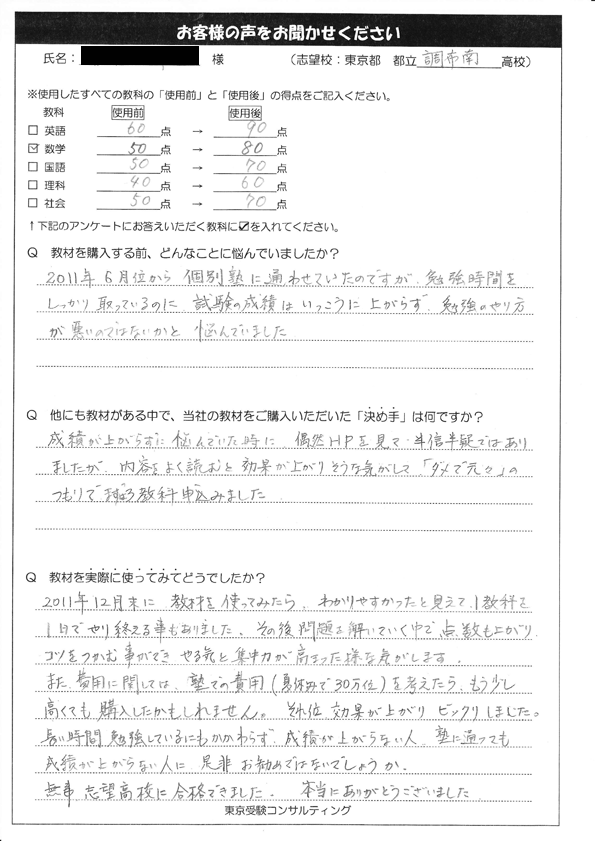 お客様の声をお聞かせください
氏名： 様 （志望校：東京都 都立 調布南 高校）
※使用したすべての教科の「使用前」と「使用後」の得点をご記入ください。
教科 使用前 使用後
□ 英語 60点 → 90点
☑ 数学 50点 → 80点
□ 国語 50点 → 70点
□ 理科 40点 → 60点
□ 社会 50点 → 70点
↑下記のアンケートにお答えいただく教科に☑を入れてください。
Q 教材を購入する前、どんなことに悩んでいましたか？
2011年6月位から 個別塾に通わせていたのですが、勉強時間を
しっかり取っているのに 試験の成績は いっこうに 上がらず、勉強のやり方
が悪いのではないかと 悩んでいました
Q 他にも教材がある中で、当社の教材をご購入いただいた「決め手」は何ですか？
成績が上がらずに 悩んでいた時に 偶然HPを見て 半信半疑ではあり
ましたが、内容をよく読むと 効果が上がりそうな気がして 「ダメで元々」の
つもりで 教科申込みました
Q 教材を実際に使ってみてどうでしたか？
2011年12月末に 教材を使ってみたら、わかりやすかったと見えて、1教科を
1日でやり終える事もありました、その後問題を解いていく中で点数も上がり、
コツをつかむ事ができ やる気と集中力が高まった様な気がします。
また、費用に関しては、塾での費用（夏休みで30万位）を考えたら、もう少し
高くても 購入したかもしれません。それ位 効果が上がり ビックリしました。
長い時間 勉強しているにもかかわらず、成績が上がらない人、塾に通っても
成績が上がらない人に 是非 お勧めではないでしょうか、
無事 志望高校に合格できました、 本当にありがとうございました
東京受験コンサルティング